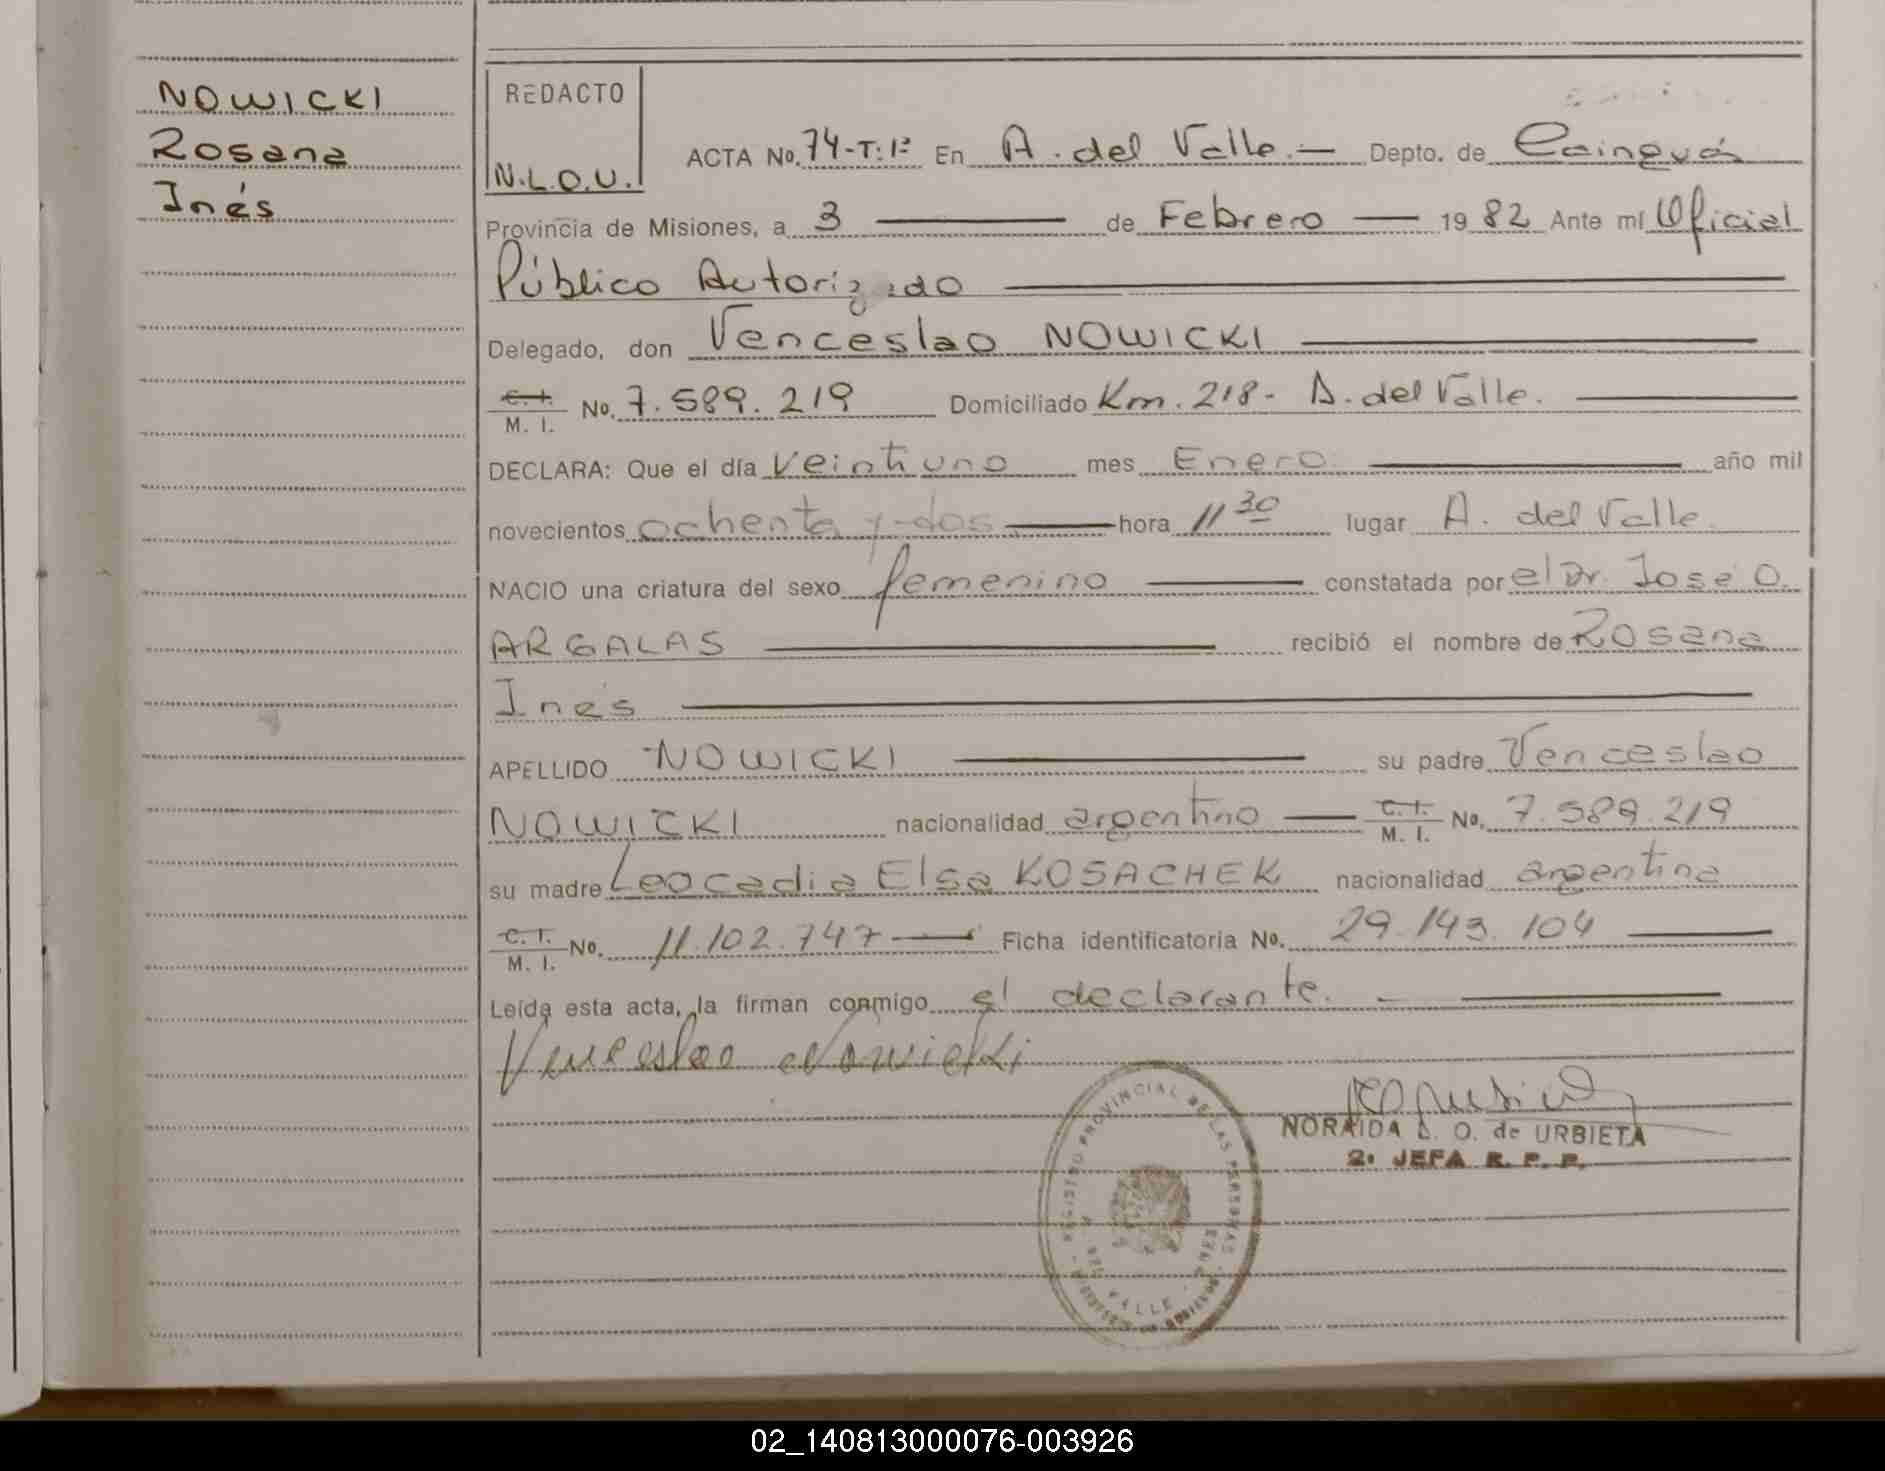 NOWICKI
Rosana
Inés
REDACTO
N.L.O.U.
ACTA No. 74-T:1º En A. del Valle.— Depto. de Cainguás
Provincia de Misiones, a 3 — de Febrero — 1982 Ante mí Oficial
Público Autorizado —
Delegado, don Venceslao NOWICKI —
C. I. / M. I. No. 7.589.219 Domiciliado Km. 218- A. del Valle. —
DECLARA: Que el día Veintiuno mes Enero — año mil
novecientos ochenta y dos — hora 11 30 lugar A. del Valle.
NACIO una criatura del sexo femenino — constatada por el Dr. José O.
ARGALAS — recibió el nombre de Rosana
Inés —
APELLIDO NOWICKI — su padre Venceslao
NOWICKI nacionalidad argentino — C. I. / M. I. No. 7.589.219
su madre Leocadia Elsa KOSACHEK nacionalidad argentina
C. I. / M. I. No. 11.102.747 — Ficha identificatoria No. 29.143.104 —
Leída esta acta, la firman conmigo el declarante. —
Venceslao Nowicki
REGISTRO PROVINCIAL DE LAS PERSONAS
A. DEL VALLE
NORAIDA L. O. de URBIETA
2º JEFA R. P. P.
02_140813000076-003926